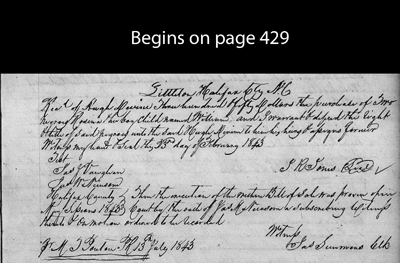 Begins on page 429
Littleton Halifax Cty NC
Recd of Hugh Three hundred fifty Dollars the purchase of Two
Negroes Rosena her boy child named William and I warrant & defend the right
& title of said negroes with the said Hugh to him his heirs & assigns forever
Witness my hand & seal the 25 day of February 1843
Test
Jas J Vaughan
J R Jones Seal
Halifax County Then the execution of the within Bill of Sale was proven open
Court by the oath of Jas a subscribing witness
thereto & on motion ordered to be recorded
Witness
M J Ponton PR July 1843
Jas Simmons Clk